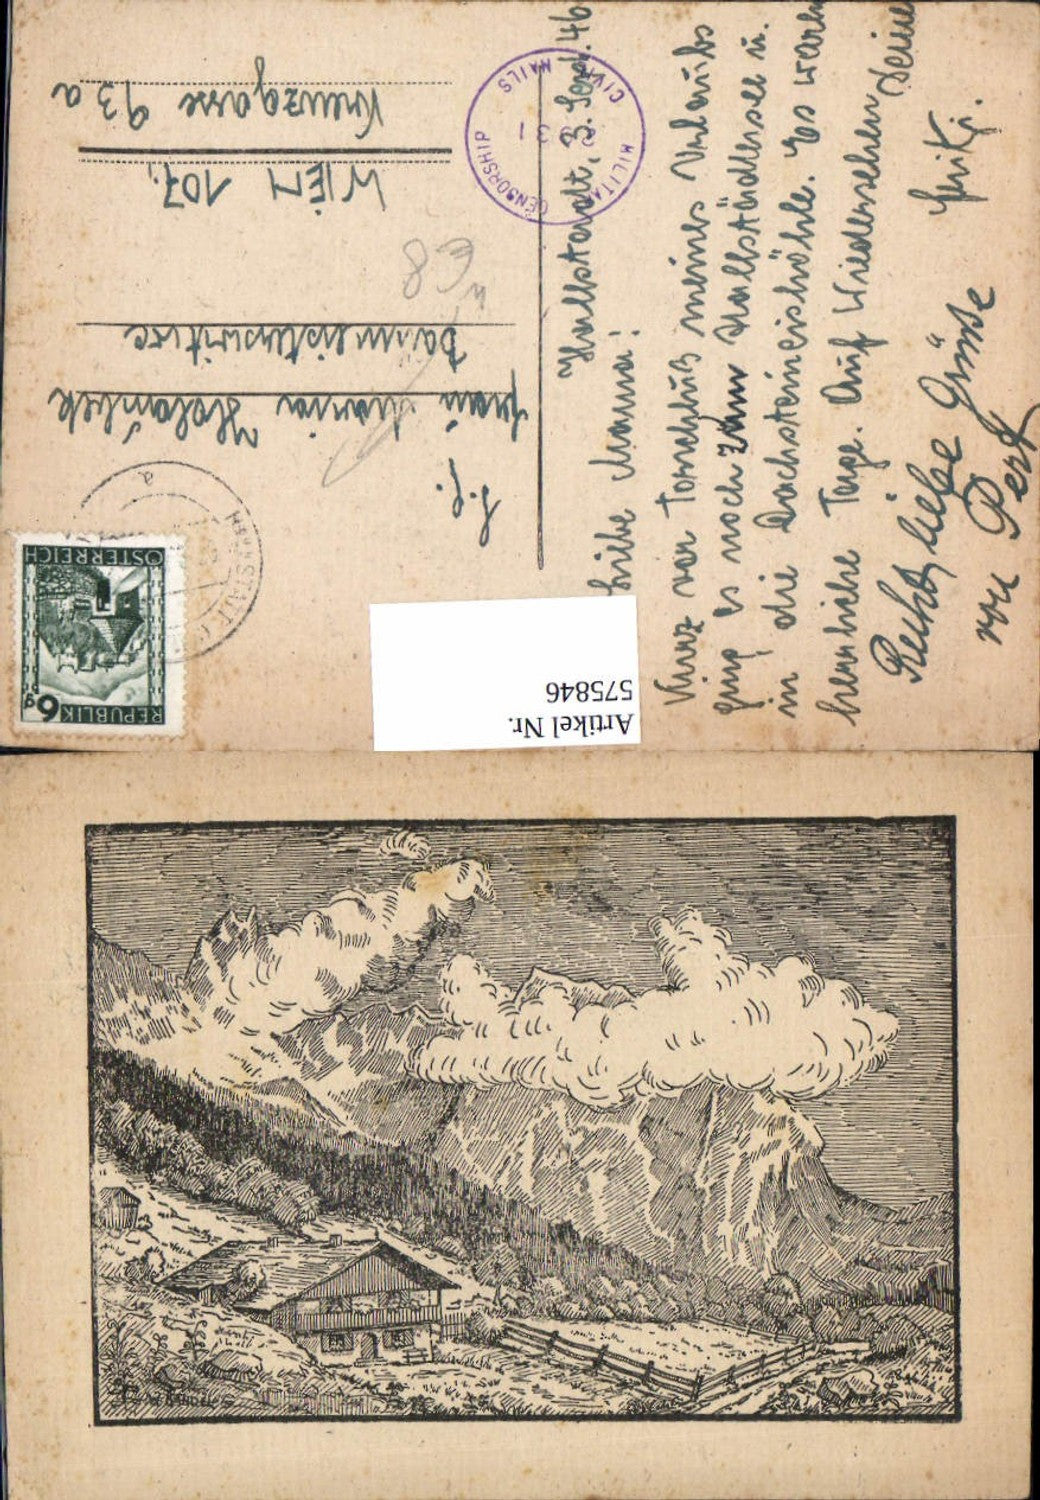 Hallstadt, 3. Sept. 46
Liebe Mama!
Kurz vor Torschluß meines Urlaubs
ging es noch zum Hallstädtersee u.
in die Dachsteineishöhle. Es waren
herrliche Tage. Auf Wiedersehen Deine
Fritzi.
Recht liebe Grüße
von Perl
MILITARY CENSORSHIP
CIVIL MAILS
Frau Maria Holoubek
Baumeisterswitwe
WIEN 107,
Kreuzgasse 93a
€8
REPUBLIK
ÖSTERREICH
6g
a
Artikel Nr.
575846